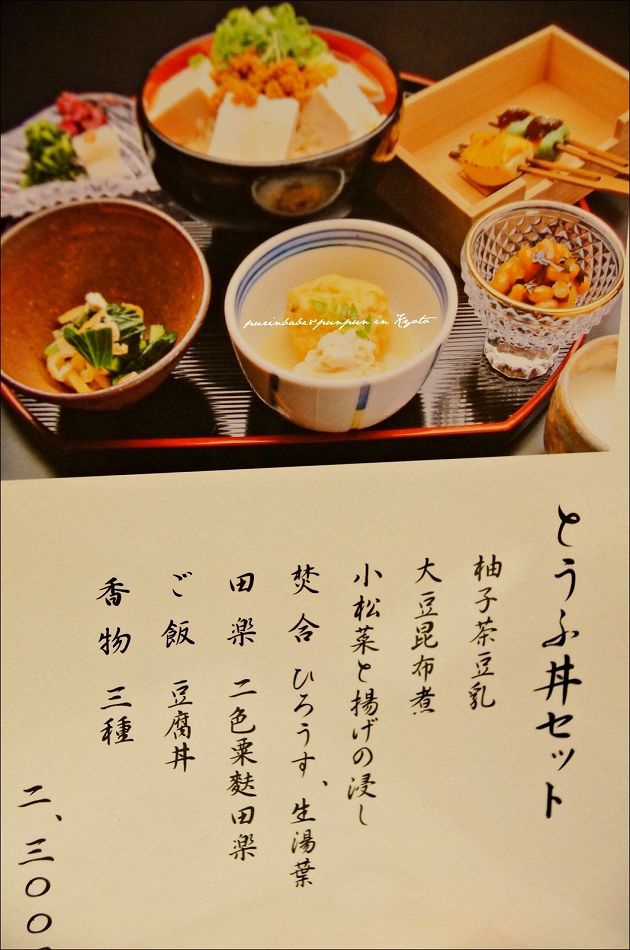 purinbabe&punpun in Kyoto
とうふ丼セット
柚子茶豆乳
大豆昆布煮
小松菜と揚げの浸し
焚合 ひろうす、生湯葉
田楽 二色粟麩田楽
ご飯 豆腐丼
香物 三種
二、三〇〇